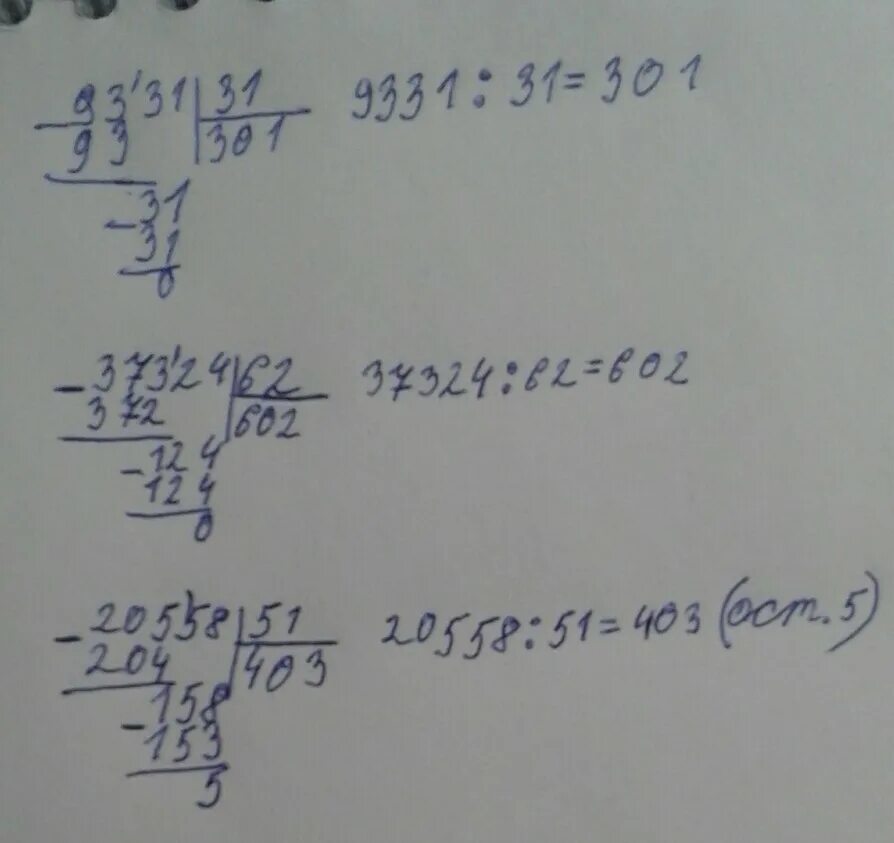 93'31 | 31 9331 : 31 = 301
93 | 301
-31
31
0
-373'24 | 62 37324 : 62 = 602
372 | 602
-124
124
0
-205'58 | 51 20558 : 51 = 403 (ост. 5)
204 | 403
-158
153
5